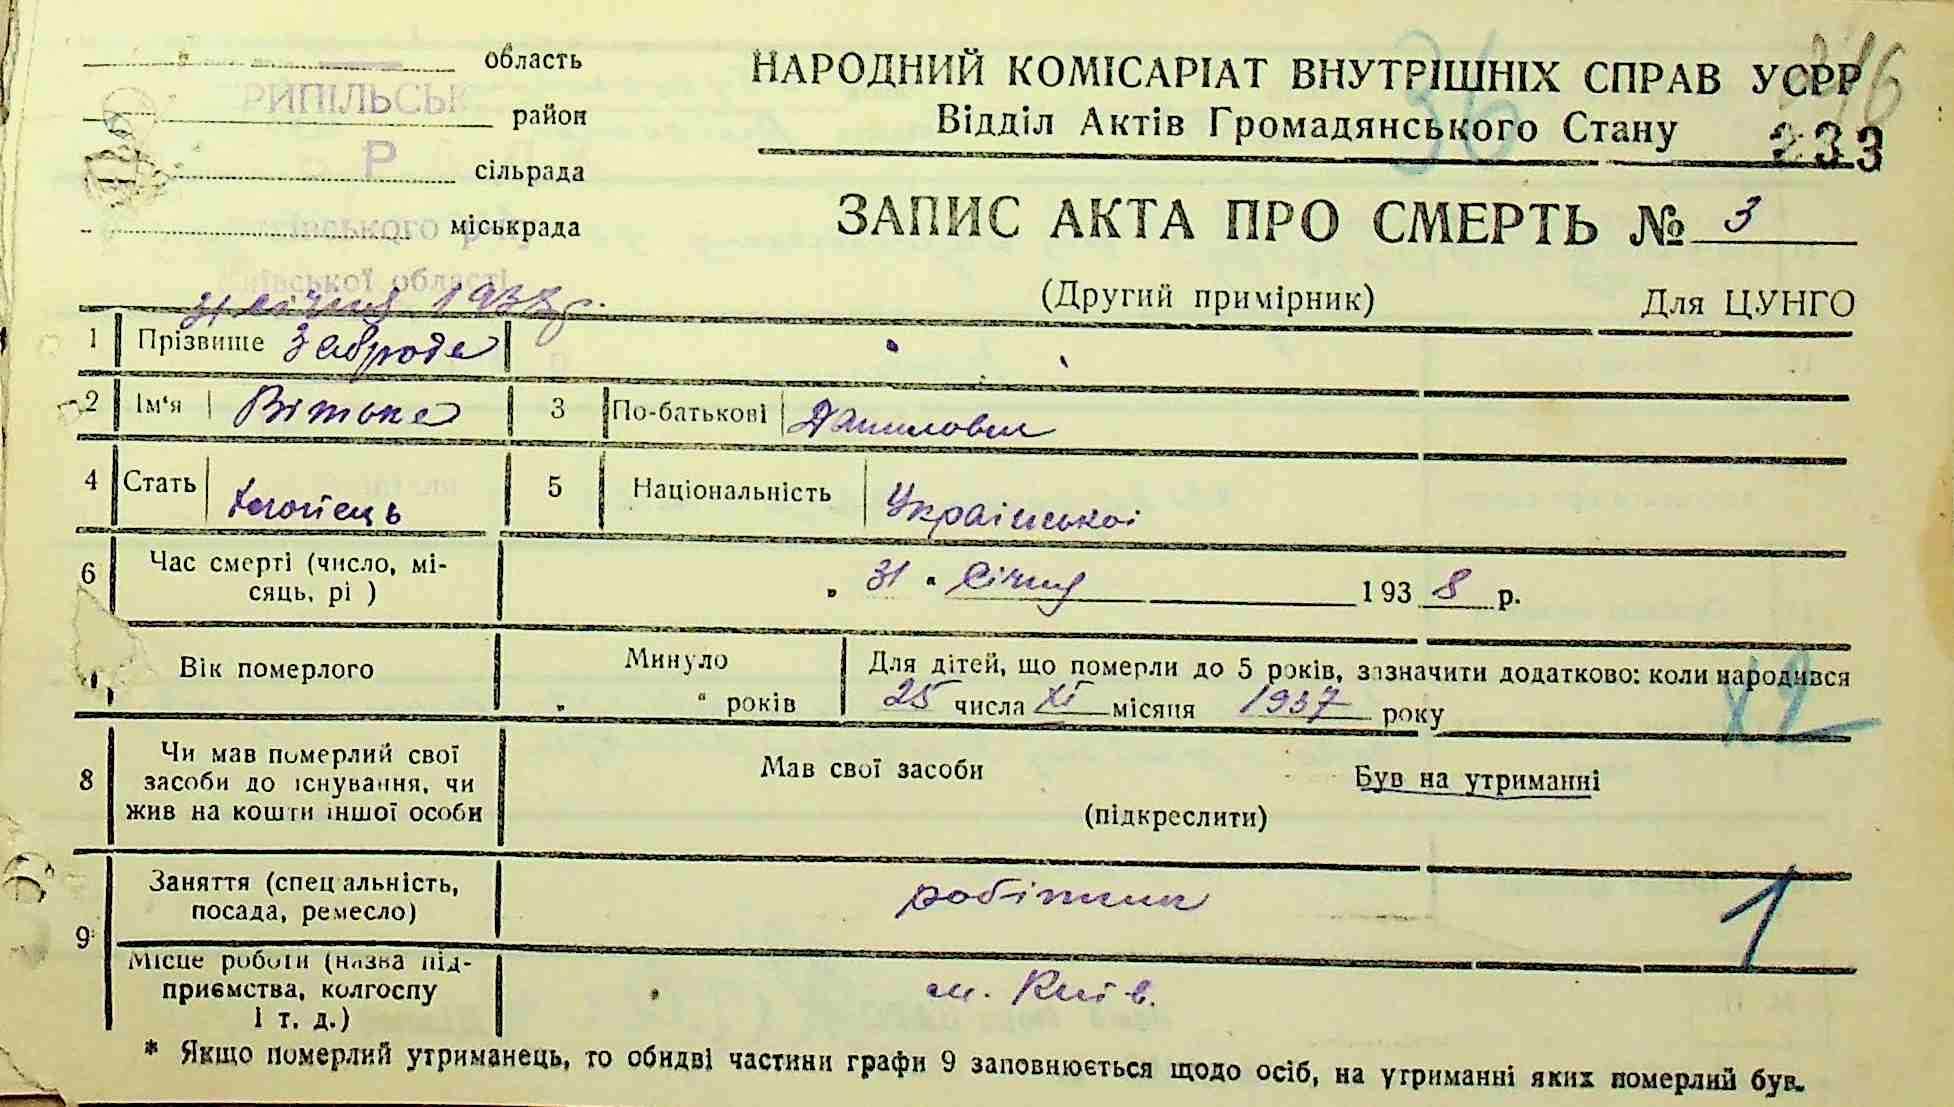 область
РИПІЛЬСЬК
район
Р
сільрада
міськрада
ївської області
січня 193 г.
НАРОДНИЙ КОМІСАРІАТ ВНУТРІШНІХ СПРАВ УСРР
Відділ Актів Громадянського Стану
36
233
ЗАПИС АКТА ПРО СМЕРТЬ № 3
(Другий примірник) Для ЦУНГО
1 Прізвище Заброда
2 Ім'я Вітька 3 По-батькові Данилович
4 Стать хлопець 5 Національність Української
6 Час смерті (число, мі-
сяць, рі ) „ 31 " січня 193 8 р.
Вік померлого Минуло
„ " років
Для дітей, що померли до 5 років, зазначити додатково: коли народився
25 числа XI місяця 1937 року
х2
8 Чи мав померлий свої
засоби до існування, чи
жив на кошти іншої особи
Мав свої засоби Був на утриманні
(підкреслити)
9 Заняття (спец альність,
посада, ремесло) робітник
1
Місце роботи (назва під-
приємства, колгоспу
і т. д.) м. Київ.
* Якщо померлий утриманець, то обидві частини графи 9 заповнюється щодо осіб, на утриманні яких померлий був.